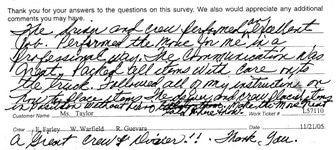 Thank you for your answers to the questions on this survey. We also would appreciate any additional
comments you may have.
The driver and crew performed an excellent
Job. Performed the Move for me in a
Professional way. The Communication was
Great. Packed all items with care onto
the truck. Followed all of my instructions on
The driver and crew placed items
in Position without
Make the Move Great
Customer Name Ms. Taylor
L57110
Crew J. Farley W. Warfield R. Guevara Date 11/21/05
A Great Crew & Driver!! Thank You.